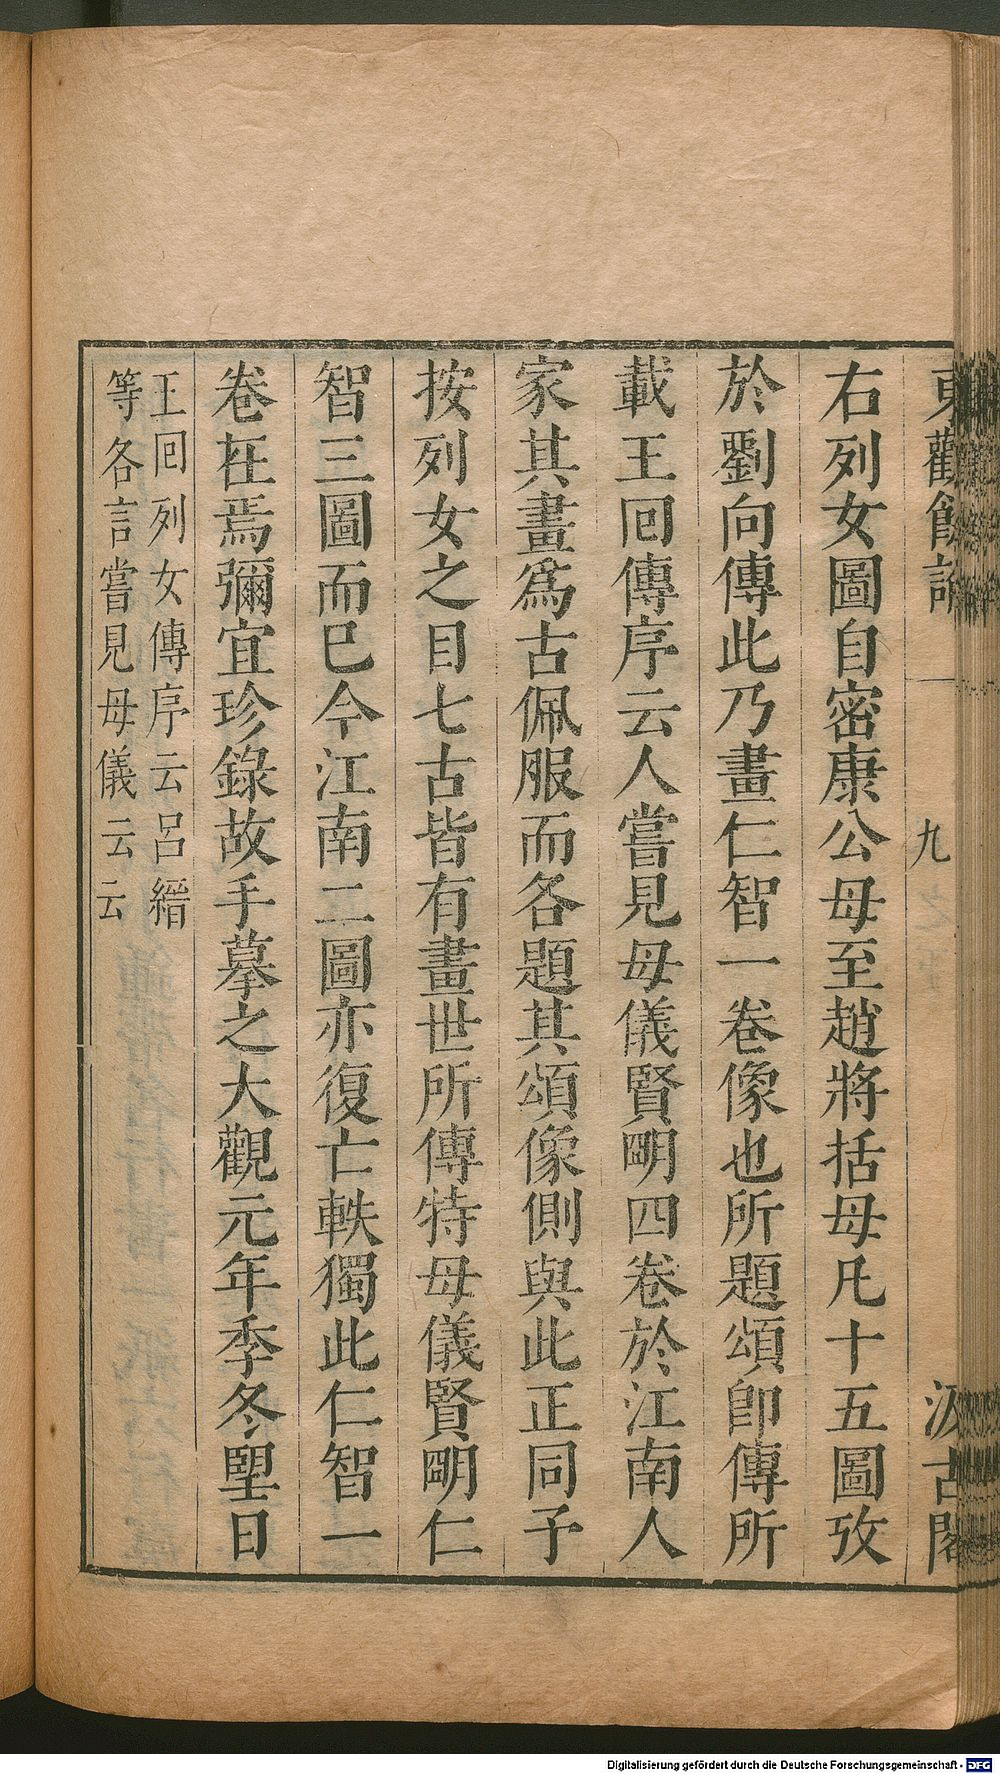 東觀餘論
九
汲古閣
右列女圖自密康公母至趙將括母凡十五圖攷
於劉向傳此乃畫仁智一卷像也所題頌卽傳所
載王囘傳序云人嘗見母儀賢明四卷於江南人
家其畫爲古佩服而各題其頌像側與此正同予
按列女之目七古皆有畫世所傳特母儀賢明仁
智三圖而巳今江南二圖亦復亡軼獨此仁智一
卷在焉彌宜珍錄故手摹之大觀元年季冬朢日
王囘列女傳序云呂縉
等各言嘗見母儀云云
Digitalisierung gefördert durch die Deutsche Forschungsgemeinschaft - DFG